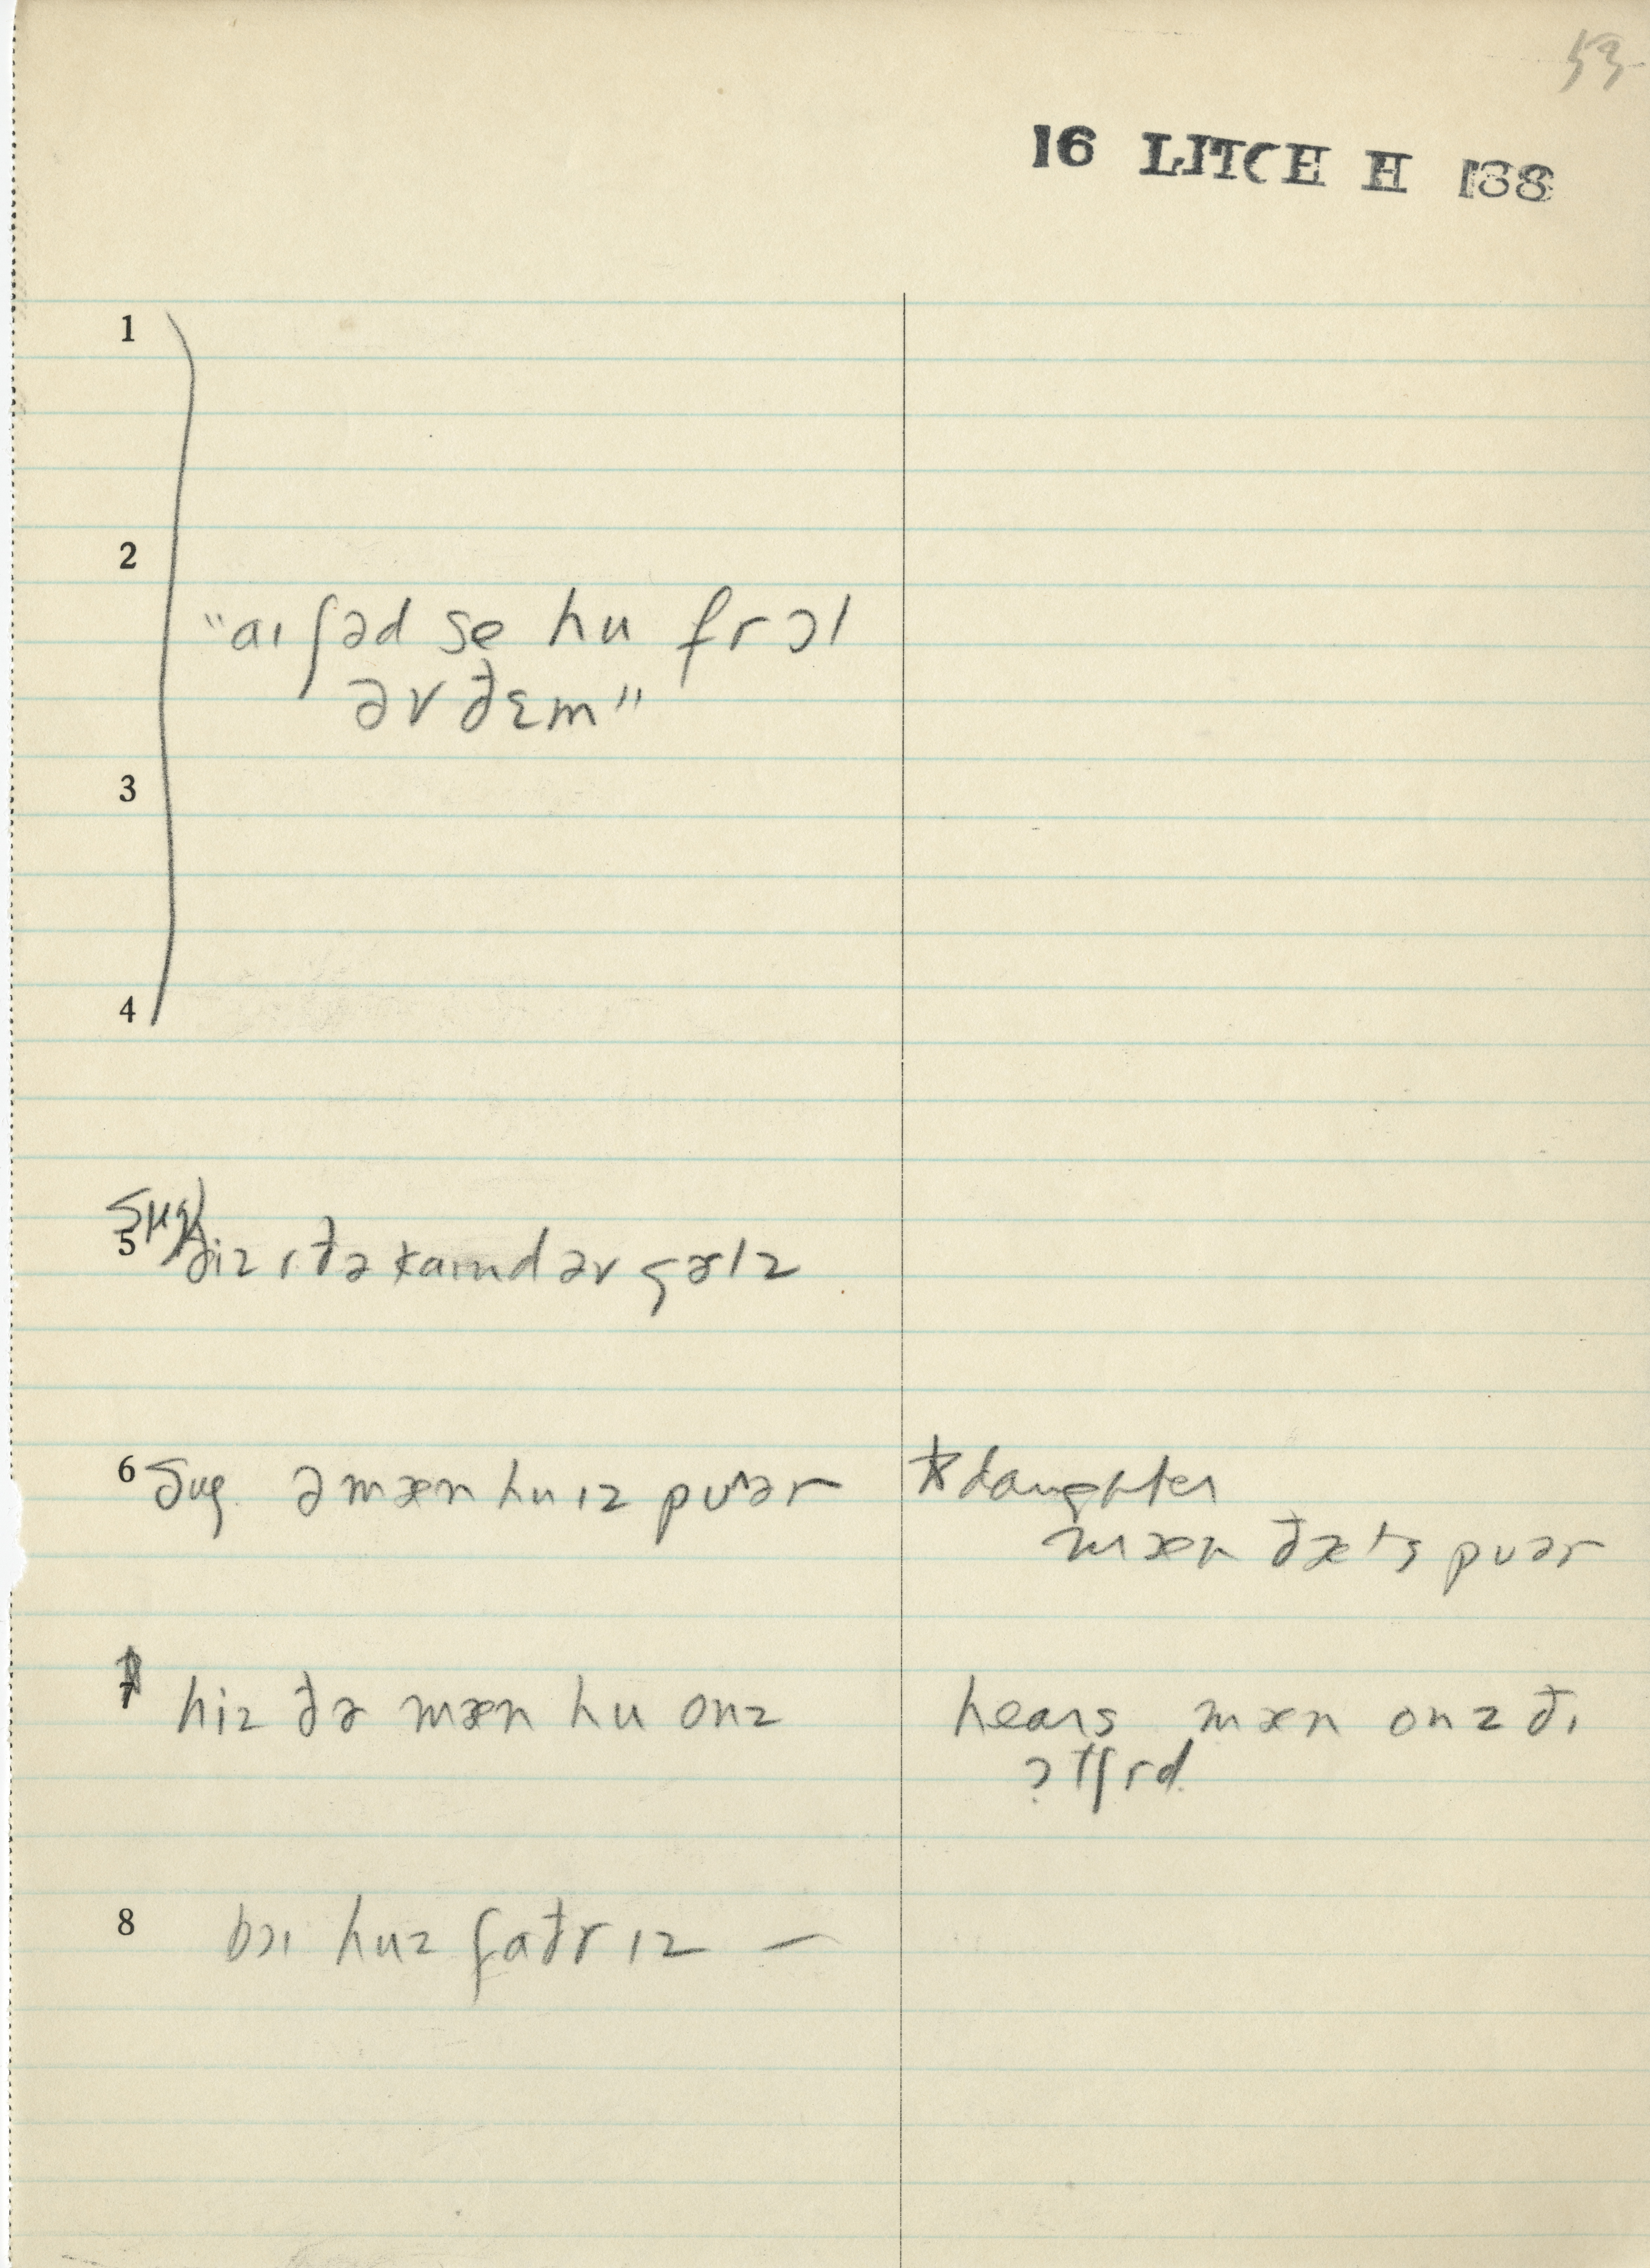 53
16 LITCH H 188
1
2
"aɪ ʃəd se hu fr ɔl
əv ðɛm"
3
4
sug
5 hiz ɪ ðə kaɪnd əv gɚlz
6 sug. ə mæn hu ɪz puʌər
* daughter
mæn ðæts puər
7 hiz ðə mæn hu onz
hears mæn onz ðɪ
ɔtʃrd
8 bɔɪ huz faðr ɪz —